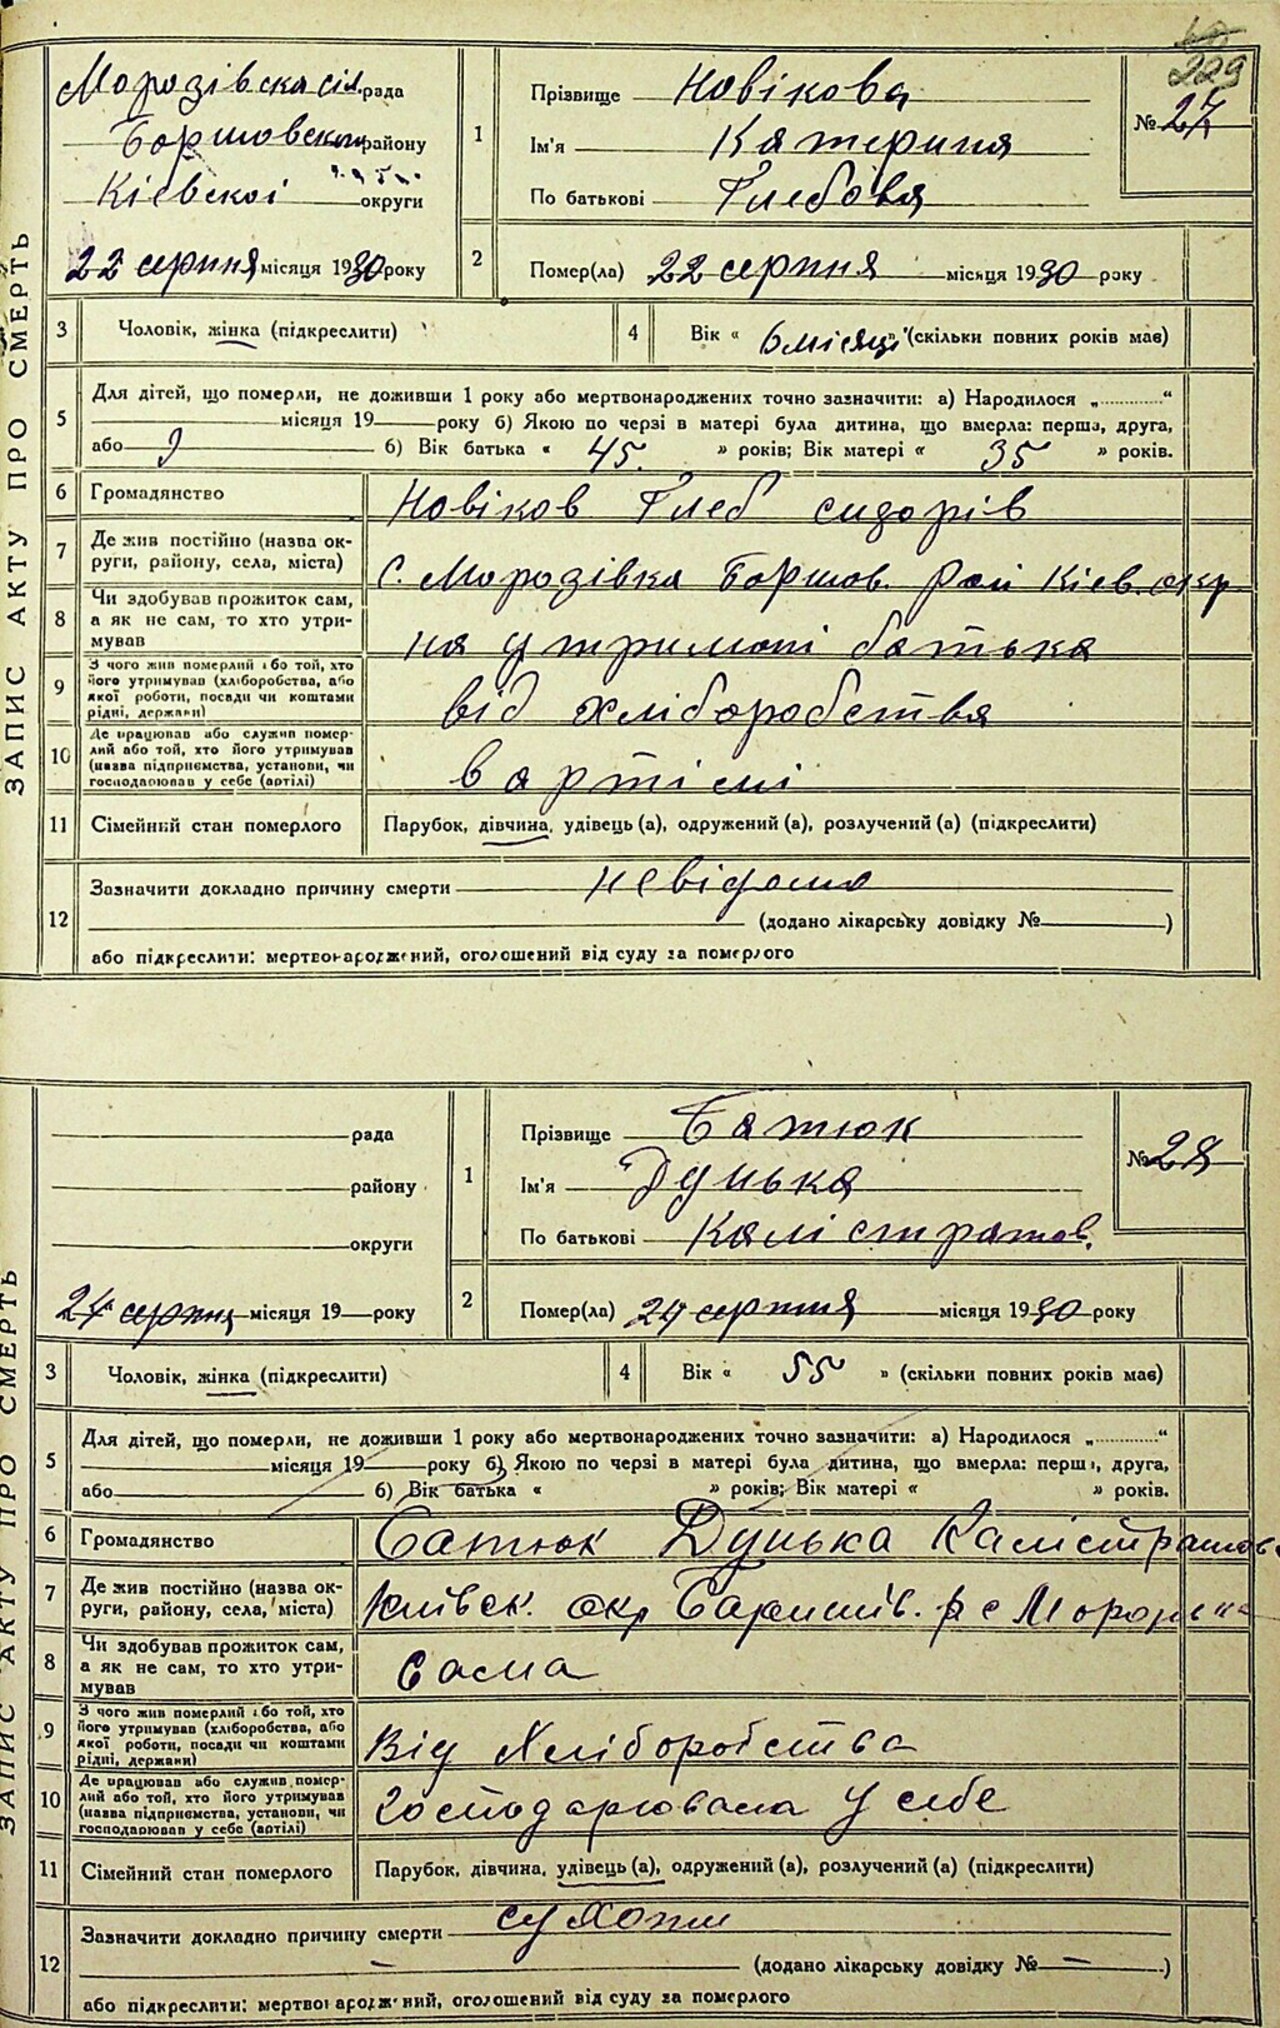 229
ЗАПИС АКТУ ПРО СМЕРТЬ
Морозівска сіл. рада
району
Кіевскоі округи
22 серпня місяця 1930 року
1
Прізвище Новікова
Ім'я Катериня
По батькові Глебовя
№ 27
2
Помер(ла) 22 серпня місяця 1930 року
3
Чоловік, жінка (підкреслити)
4
Вік « 6 місяц » (скільки повних років має)
5
Для дітей, що померли, не доживши 1 року або мертвонароджених точно зазначити: а) Народилося „ “
місяця 19 року б) Якою по черзі в матері була дитина, що вмерла: перша, друга,
або 9 б) Вік батька « 45. » років; Вік матері « 35 » років.
6
Громадянство
Новіков Глеб сидорів
7
Де жив постійно (назва округи, району, села, міста)
с. Морозівка Боршов. рай Кіев. окр.
8
Чи здобував прожиток сам,
а як не сам, то хто утри-
мував
ня утримані батька
9
З чого жив померлий або той, хто
його утримував (хліборобства, або
якої роботи, посади чи коштами
рідні, держави)
від хліборобствя
10
Де працював або служив помер-
лий або той, хто його утримував
(назва підприємства, установи, чи
господарював у себе (артілі)
в артілі
11
Сімейний стан померлого
Парубок, дівчина, удівець (а), одружений (а), розлучений (а) (підкреслити)
12
Зазначити докладно причину смерти невідомо
(додано лікарську довідку № )
або підкреслити: мертвонароджений, оголошений від суду за померлого
ЗАПИС АКТУ ПРО СМЕРТЬ
рада
району
округи
24 серпня місяця 19 року
1
Прізвище Батюк
Ім'я Дунька
По батькові Калістратов.
№ 28
2
Помер(ла) 24 серпня місяця 1930 року
3
Чоловік, жінка (підкреслити)
4
Вік « 55 » (скільки повних років має)
5
Для дітей, що померли, не доживши 1 року або мертвонароджених точно зазначити: а) Народилося „ “
місяця 19 року б) Якою по черзі в матері була дитина, що вмерла: перша, друга,
або б) Вік батька « » років; Вік матері « » років.
6
Громадянство
Батюк Дунька Калістратов.
7
Де жив постійно (назва ок-
руги, району, села, міста)
Київск. окр Баришів. р с
8
Чи здобував прожиток сам,
а як не сам, то хто утри-
мував
Сама
9
З чого жив померлий або той, хто
його утримував (хліборобства, або
якої роботи, посади чи коштами
рідні, держави)
Від Хліборобства
10
Де працював або служив помер-
лий або той, хто його утримував
(назва підприємства, установи, чи
господарював у себе (артілі)
господарювала у себе
11
Сімейний стан померлого
Парубок, дівчина, удівець (а), одружений (а), розлучений (а) (підкреслити)
12
Зазначити докладно причину смерти сухоти
(додано лікарську довідку № — )
або підкреслити: мертвонароджений, оголошений від суду за померлого